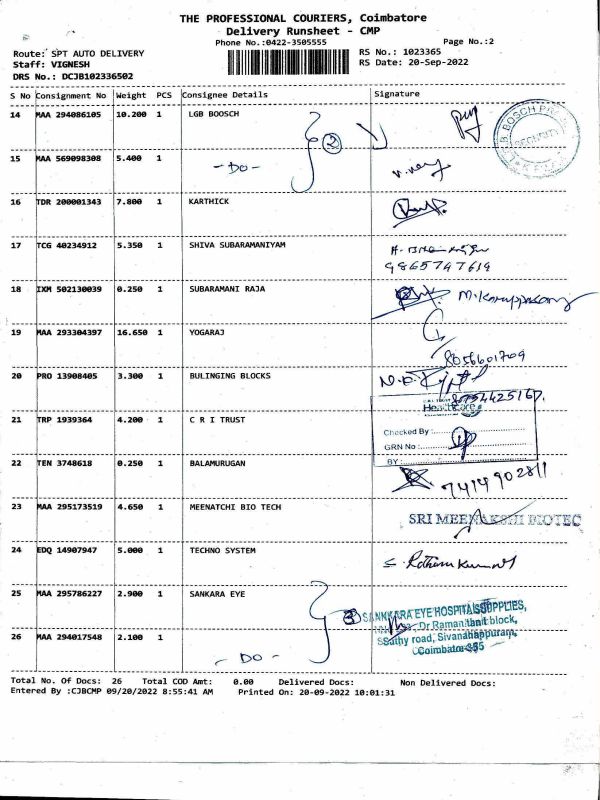 THE PROFESSIONAL COURIERS, Coimbatore
Delivery Runsheet - CMP
Phone No.:0422-3505555
Page No.:2
Route: SPT AUTO DELIVERY
RS No.: 1023365
Staff: VIGNESH
RS Date: 20-Sep-2022
DRS No.: DCJB102336502
S No Consignment No Weight PCS Consignee Details Signature
14 MAA 294086105 10.200 1 LGB BOOSCH
2
SECURITY
15 MAA 569098308 5.400 1 - Do -
16 TDR 200001343 7.800 1 KARTHICK
17 TCG 40234912 5.350 1 SHIVA SUBARAMANIYAM
9865747619
18 IXM 502130039 0.250 1 SUBARAMANI RAJA
M.Karuppasamy
19 MAA 293304397 16.650 1 YOGARAJ
8056601709
20 PRO 13908405 3.300 1 BULINGING BLOCKS
8754425167.
Healthcare
21 TRP 1939364 4.200 1 C R I TRUST
Checked By :
GRN No :
BY :
22 TEN 3748618 0.250 1 BALAMURUGAN
7414902811
23 MAA 295173519 4.650 1 MEENATCHI BIO TECH
SRI MEENAKSHI BIOTEC
24 EDQ 14907947 5.000 1 TECHNO SYSTEM
S. Rathinakumar
25 MAA 295786227 2.900 1 SANKARA EYE
3
SANKARA EYE HOSPITAL SUPPLIES,
Dr Ramanathan block,
Sathy road, Sivanandapuram,
Coimbatore-35
26 MAA 294017548 2.100 1
- Do -
Total No. Of Docs: 26 Total COD Amt: 0.00 Delivered Docs: Non Delivered Docs:
Entered By :CJBCMP 09/20/2022 8:55:41 AM Printed On: 20-09-2022 10:01:31